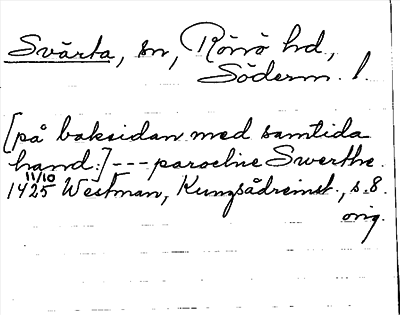 Svärta, sn, Rönö hd,
Söderm. l.
[på baksidan med samtida
hand:] --- parochie Swerthe.
1425 11/10 Westman, Kungsådreinst., s. 8.
orig.